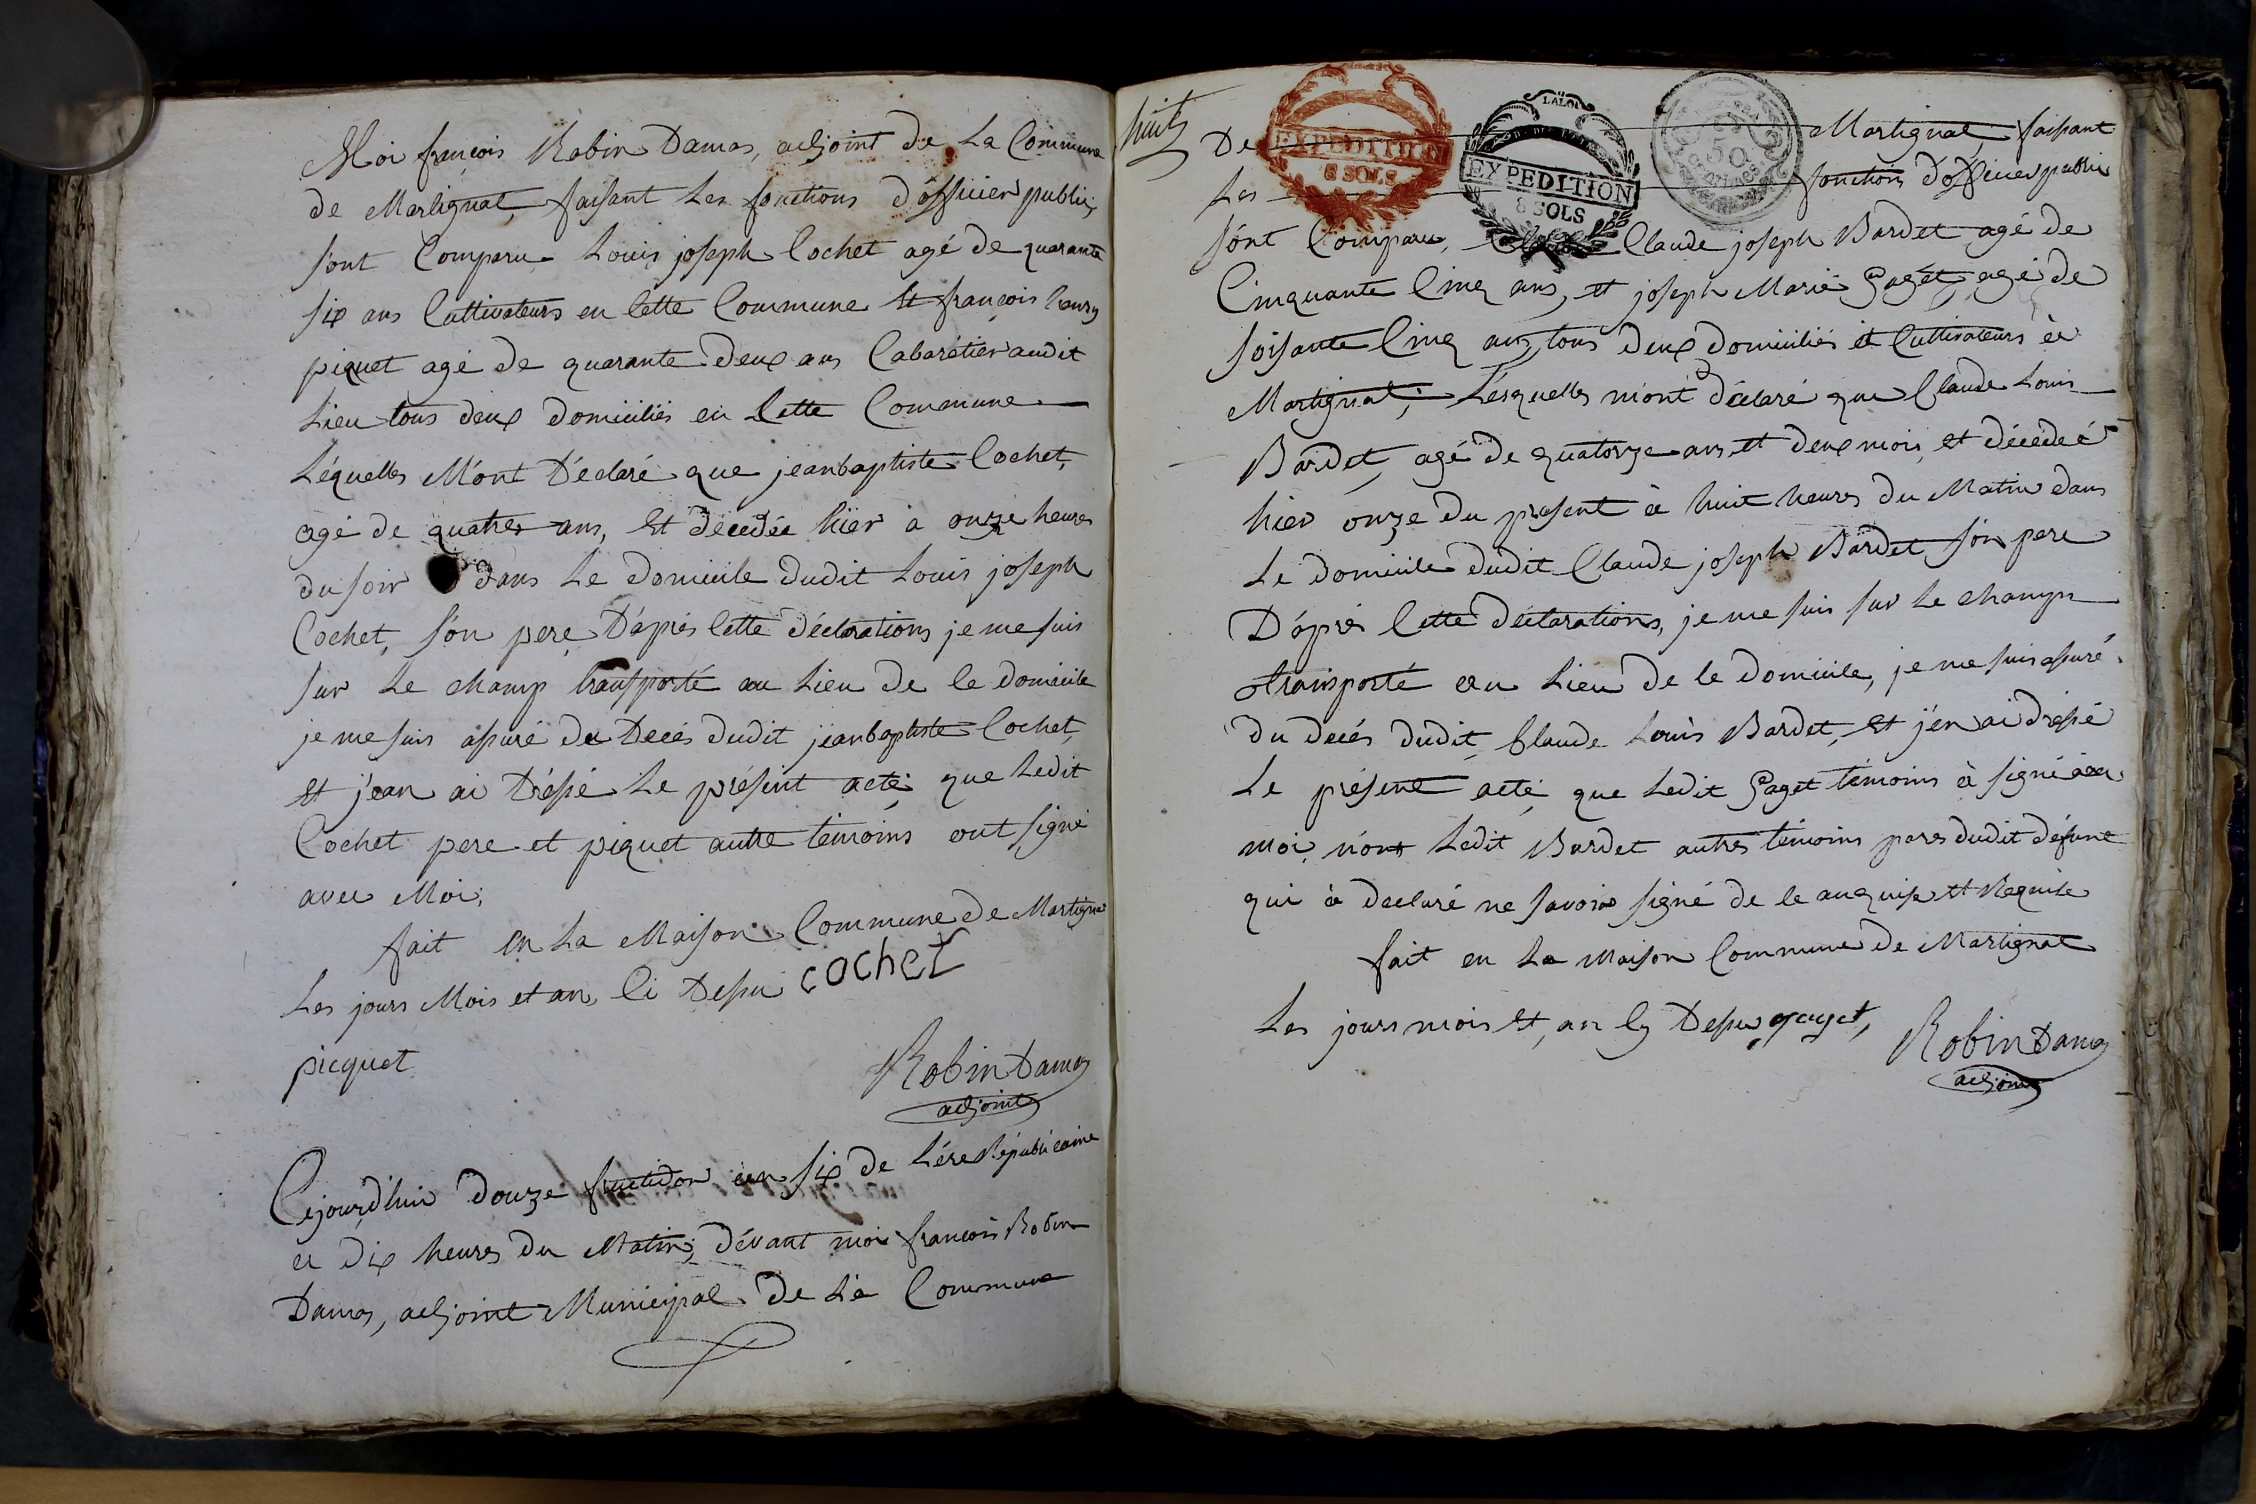 Moi françois Robin Damas, adjoint de La Commune
de Martignat, faisant Les fonctions d'officier public,
sont Comparu Louis joseph Cochet agé de quarante
six ans Cultivateurs en Cette Commune Et françois henry
piquet agé de quarante deux ans Cabarétier audit
Lieu tous deux domiciliés en Cette Commune
Léquelles M'ont Déclaré que jeanbaptiste Cochet,
agé de quatres ans, Et décedée hïer à onze heures
du soir dans Le domicile dudit Louis joseph
Cochet, son pere, D'aprés Cette déclarations je me suis
sur Le champ transporté au Lieu de Ce domicile
je me suis assuré du Decés dudit jeanbaptiste Cochet,
Et j'ean ai Dréssé Le présent acte que Ledit
Cochet pere et piquet autre témoins ont signé
avec Moi;
fait en La Maison Commune de Martignat
Les jours Mois et an, Ci Dessu cochet
picquet
Robin Damas
adjoint
Cejourd'hui douze fructidor an six de L'ére Républicaine
a dix heures du Matin, dévant moi françois Robin
Damas, adjoint Municipal de La Commune
huit
LALOI
EXPEDITION
6 SOLS
EXPEDITION
8 SOLS
50
De Martignat, faisant
Les fonctions d'officier public
sont Comparu, Claude joseph Bardet agé de
Cinquante Cinq ans, et joseph Marie Gagét, agé de
soisante Cinq ans, tous deux domiciliés et Cultivateurs à
Martignat; Lésquelles m'ont déclaré que Claude Louis
Bardet, agé de quatorze ans et deux mois, et décédeé
hier onze du present à huit heures du Matin dans
Le domicile dudit Claude joseph Bardet son pere
D'aprés Cette déclarations, je me suis sur Le champs
transporté au Lieu de Ce domicile, je me suis assuré
du decés dudit Claude Louis Bardet, et j'en ai dréssé
Le présent acte, que Ledit Gaget témoins à signé avec
moi, non Ledit Bardet autres témoins peres dudit défunt
qui à declaré ne savoir signé de Ce anquise et Requise
fait en La Maison Commune de Martignat
Les jours mois Et, an Cy Dessu gaget,
Robin Damas
adjoint